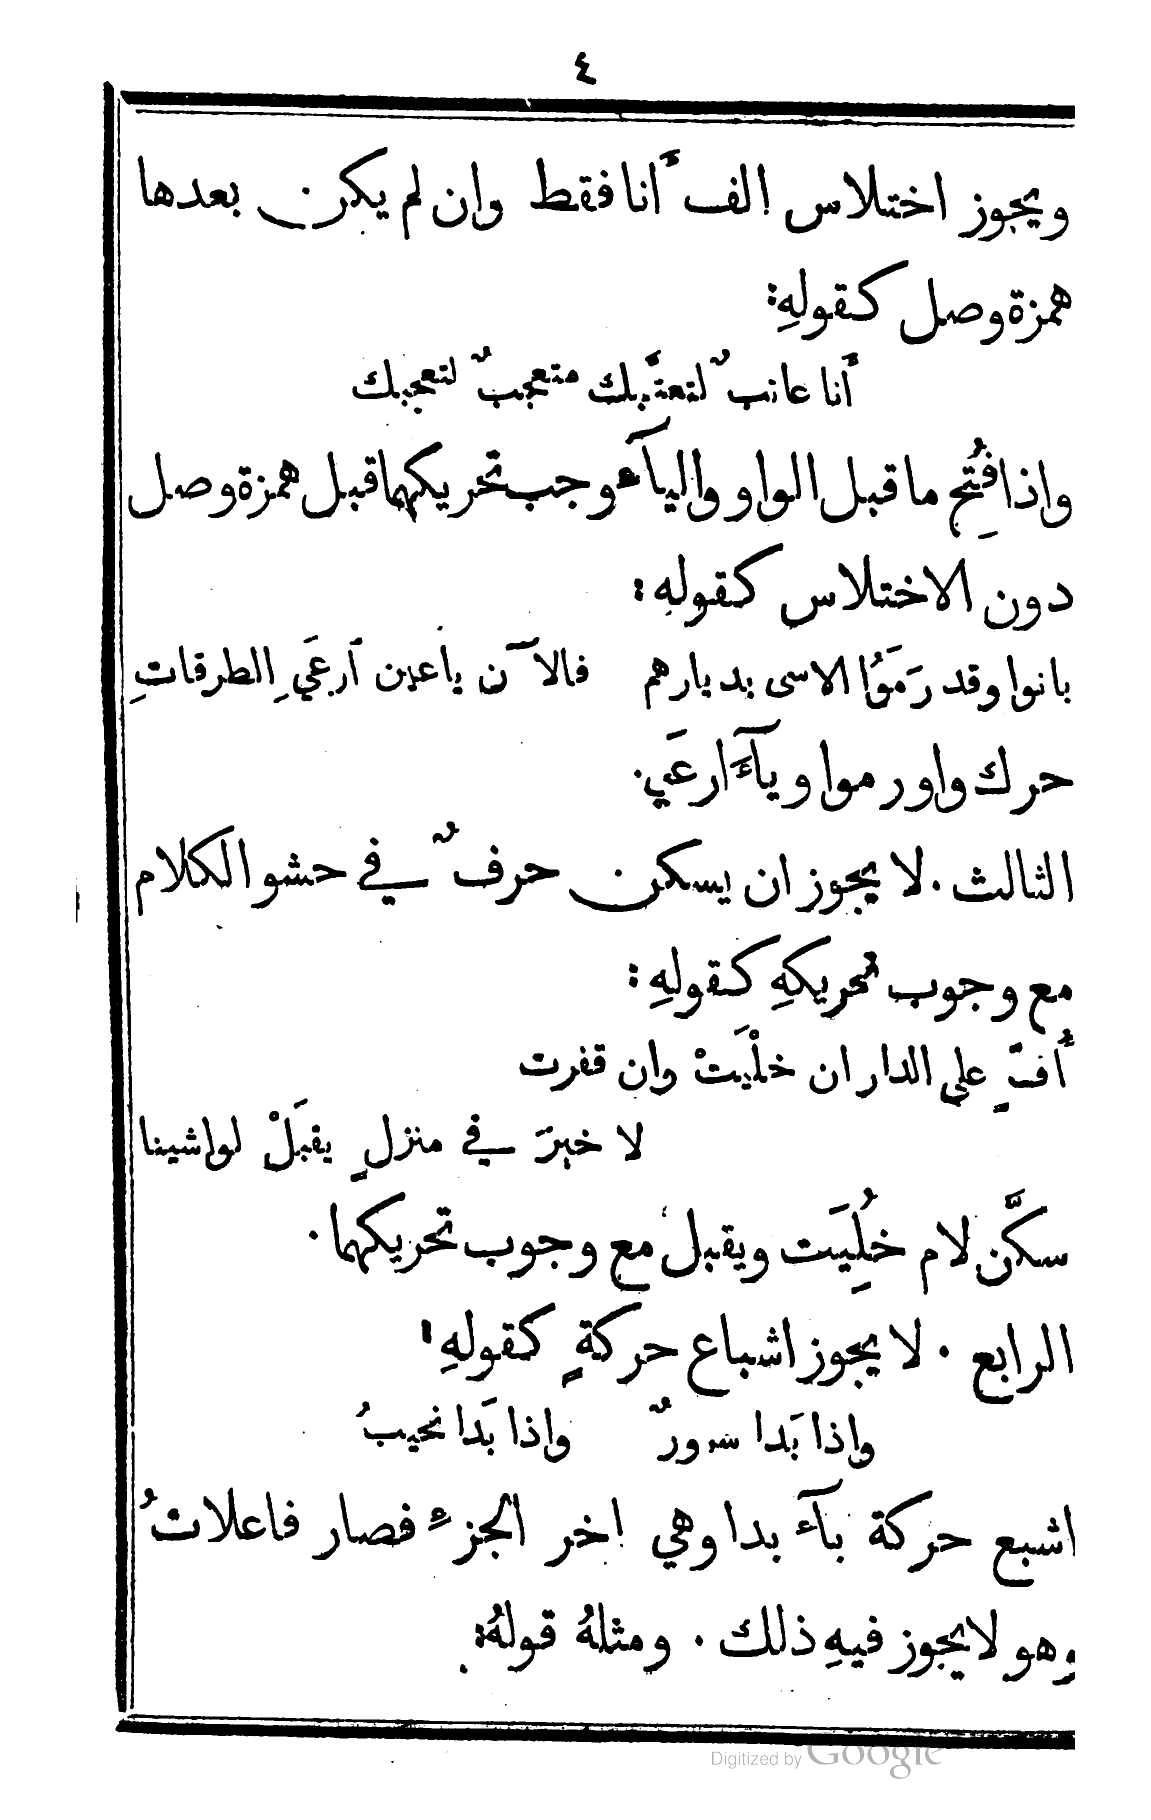 ٤
ويجوز اختلاس الف أَنا فقط وان لم يكن بعدها
همزة وصل كقولهِ:
أَنا عاتبٌ لتعتُّبك متعجبٌ لتعجبك
واذا فُتِح ما قبل الواو واليآء وجب تحريكهما قبل همزة وصل
دون الاختلاس كقولهِ:
بانوا وقد رَمَوُا الاسى بديارهم فالآن ياعين ٱرعَيِ الطرقاتِ
حرك واو رموا ويآءَ ارعَي.
الثالث. لا يجوز ان يسكن حرفٌ في حشو الكلام
مع وجوب تحريكهِ كقولهِ:
أُفّـٍ على الدار ان خلْيَتْ وان قفرت
لا خيرَ في منزلٍ يقبَلْ لواشينا
سكَّن لام خُلِيَت ويقبل مع وجوب تحريكهما.
الرابع. لا يجوز اشباع حركةٍ كقولهِ:
واذا بَدا سرورٌ واذا بَدا نحيبُ
اشبع حركة بآء بدا وهي اخر الجزءِ فصار فاعلاتُ
وهو لا يجوز فيهِ ذلك. ومثلهُ قولهُ:
Digitized by Google